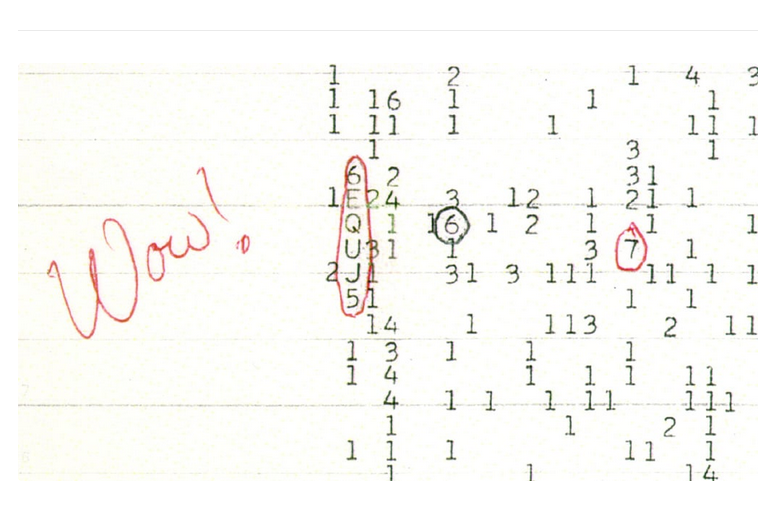 1 2 1 4 3
1 16 1 1 1
1 11 1 1 11 1
1 3 1
6 2 31
1 E 24 3 12 1 21 1
Q 1 16 1 2 1 1 1
Wow!
U31 1 3 7 1
2 J1 31 3 111 11 1 1
51 1 1
14 1 113 2 11
1 3 1 1 1
1 4 1 1 1 11
4 1 1 1 11 111
1 1 2 1
1 1 1 11 1
1 1 14